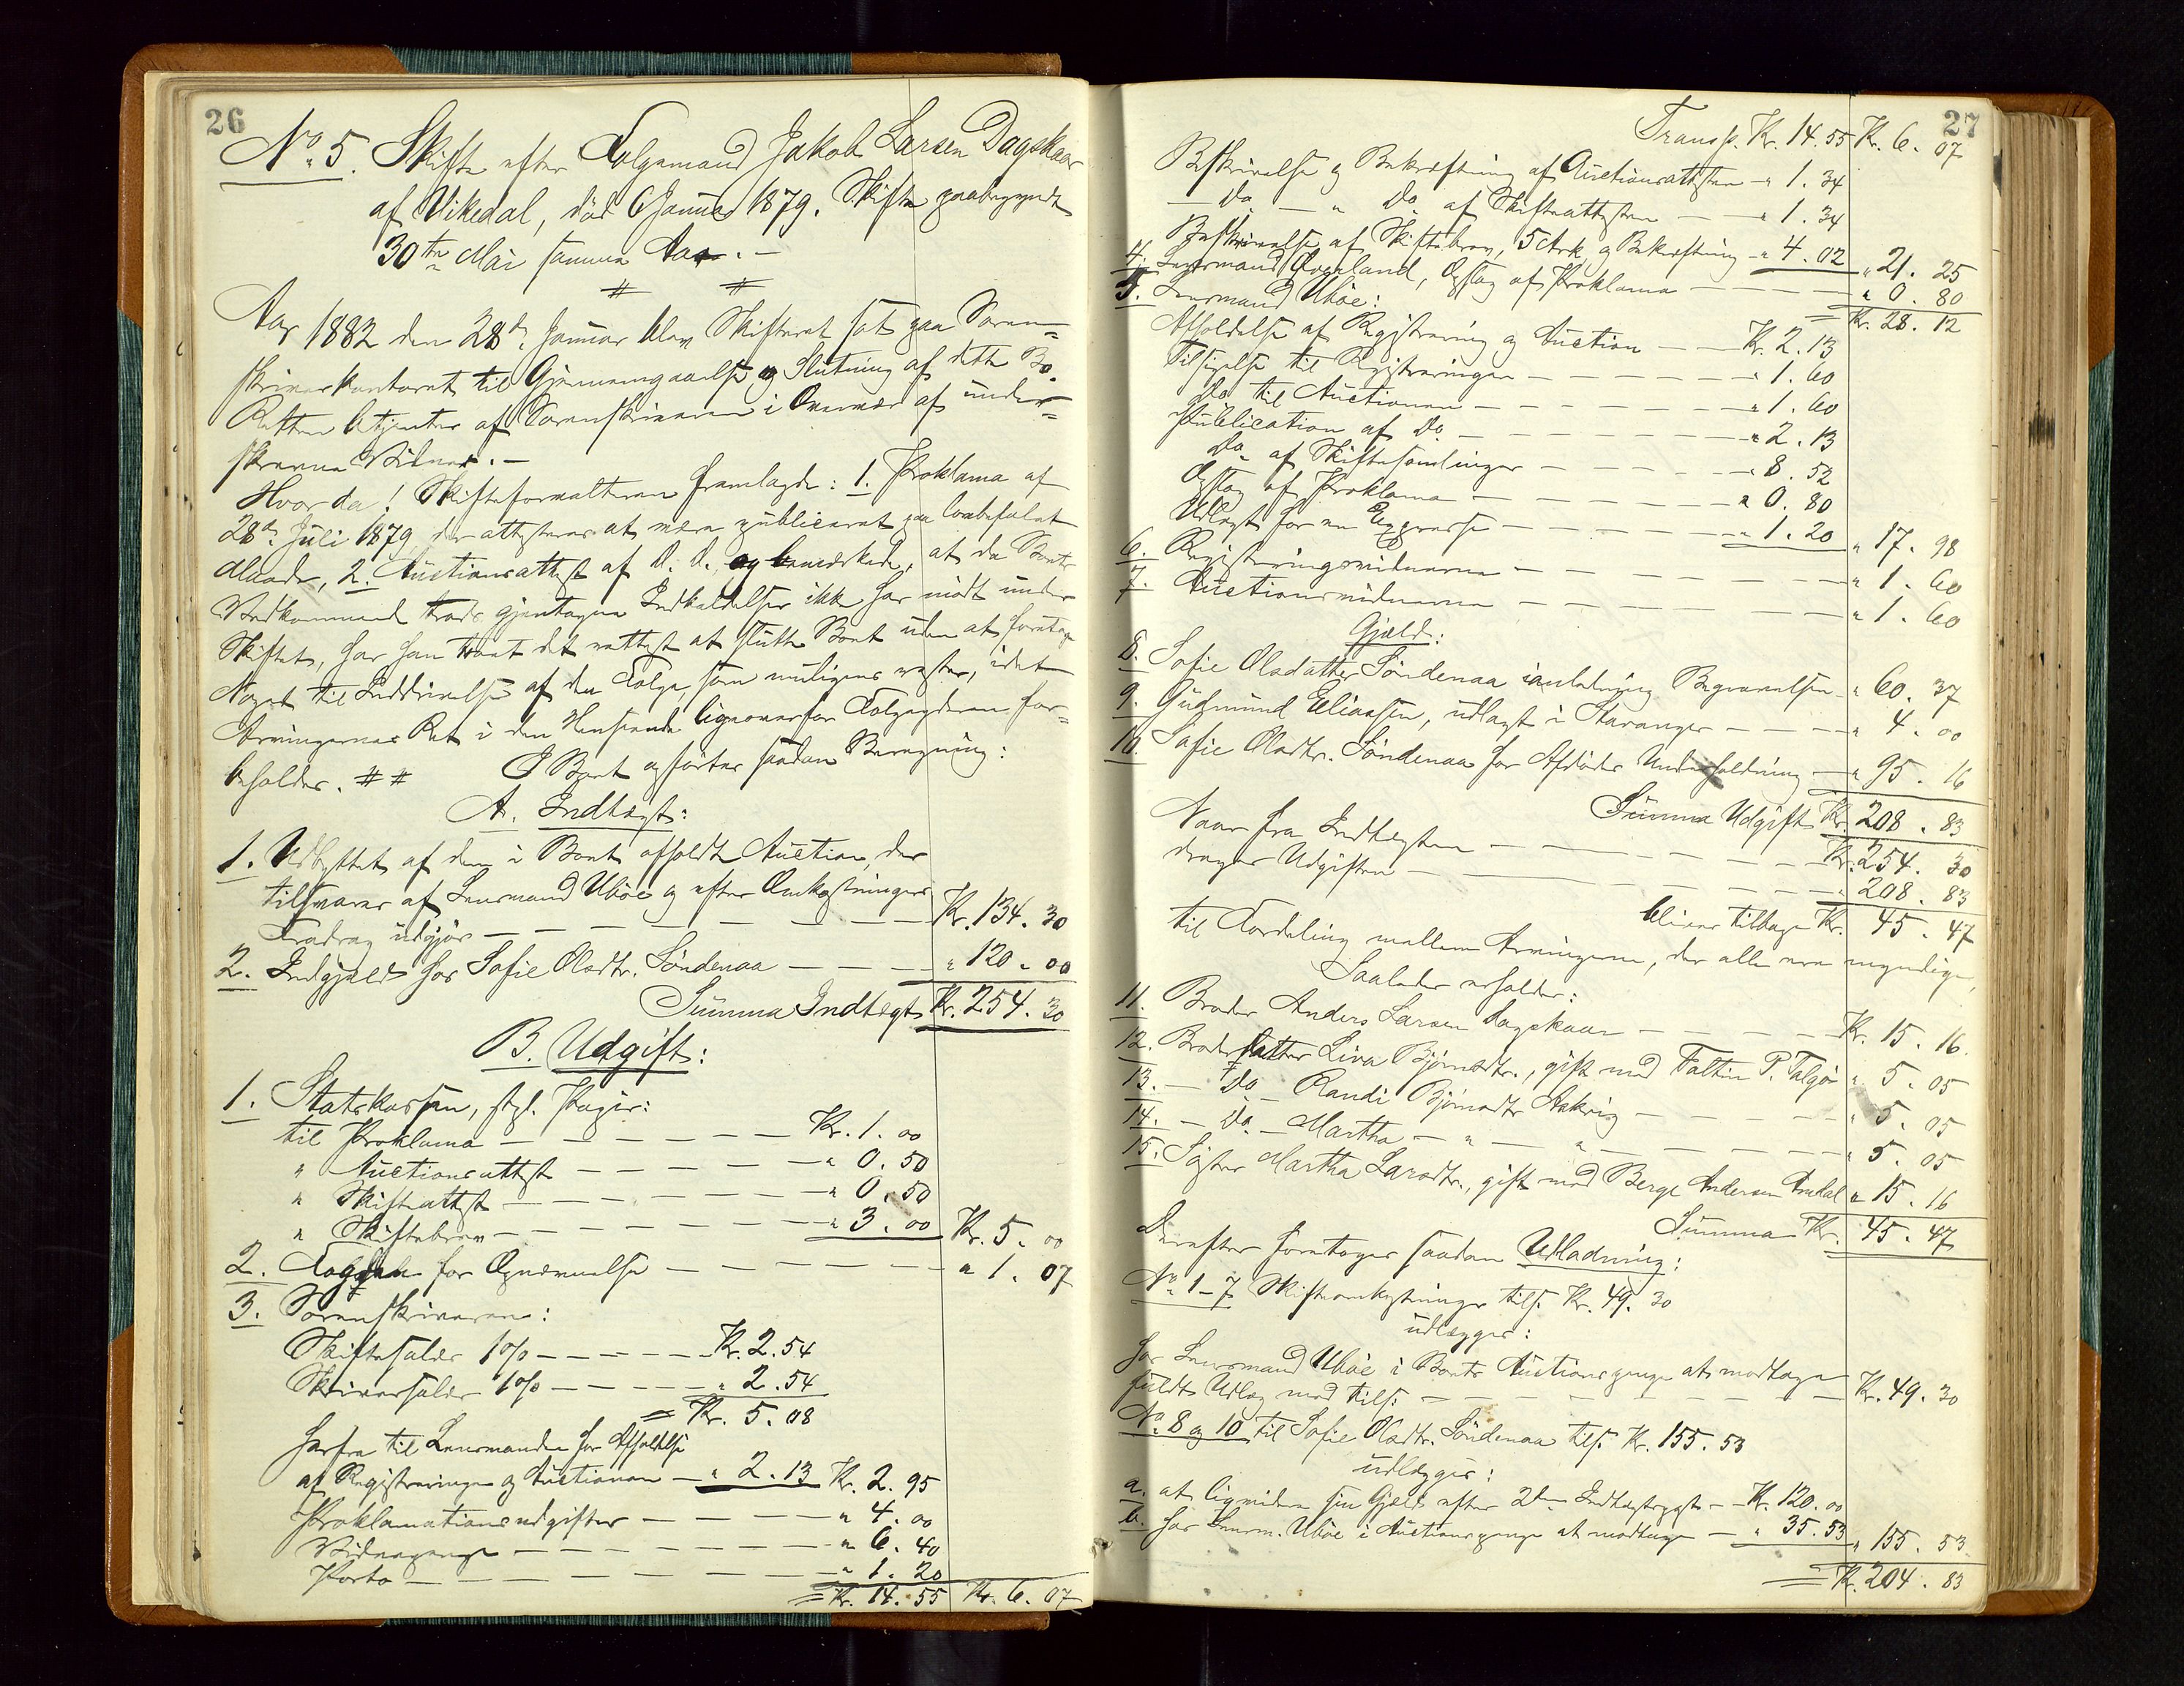 26
No 5. Skifte efter Folgemand Jakob Larsen Dagskaar
af Vikedal, död 6 Januar 1879. Skifte paabegyndt
30te Mai samme Aar. –
Aar 1882 den 28de Januar blev Skifteret sat paa Soren-
skriverkontoret til Gjennemgaaelse og Slutning af dette Bo.
Retten betjentes af Sorenskriveren i Overvær af under-
skrevne Vidner. –
Hvor da! Skifteforvalteren fremlagde: 1. Proklama af
28de Juli 1879 der attesteres at være publiceret paa lovbefalet
Maade, 2. Auctionsattest af d. d. og bemærkede, at da Boets
Vedkommende trods gjentagne Indkaldelser ikke har mödt under
Skiftet, har han troet det rettest at slutte Boet uden at foretage
Noget til Inddrivelse af den Folge, som muligens rester, idet
Arvingernes Ret i den Henseende ligeoverfor Folgegiveren for-
beholdes. # # I Boet opförtes saadan Beregning:
A. Indtægt:
1. Udbyttet af den i Boet afholdte Auction, der
tilsvares af Lensmand Uböe og efter Omkostningers
Fradrag udgjör – – – – – – Kr. 134. 30
2. Indgjæld hos Sofie Olsdtr. Söndenaa – – – " 120. 00
Summa Indtægt Kr. 254. 30
B. Udgift:
1. Statskassen, stpl. Papir:
til Proklama – – – – – Kr. 1. 00
" Auctionsattest – – – – " 0. 50
" Skifteattest – – – – – " 0. 50
" Skiftebrev – – – – – " 3. 00 Kr. 5. 00
2. Fogden for Opnævnelse – – – – – " 1. 07
3. Sorenskriveren:
Skiftesalær 1% – – – – – Kr. 2. 54
Skriversalær 1% – – – – " 2. 54
= Kr. 5. 08
herfra til Lensmanden for Afholdelse
af Registrering og Auctionen – " 2. 13 Kr. 2. 95
Proklamationsudgifter – – – – " 4. 00
Vidnepenge – – – – – – " 6. 40
Porto – – – – – – – " 1. 20
= Kr. 14. 55 Kr. 6. 07
27
Transp. Kr. 14. 55 Kr. 6. 07
Beskrivelse og Bekræftning af Auctionsattesten – " 1. 34
– Do – " Do af Skifteattesten – – " 1. 34
Beskrivelse af Skiftebrev, 5 Ark, og Bekræftning – " 4. 02 " 21. 25
4. Lensmand Qvaland, Opslag af Proklama – – – – " 0. 80
5. Lensmand Uböe: = Kr. 28. 12
Afholdelse af Registrering og Auction – – Kr. 2. 13
Tilsigelse til Registreringen – – – – – " 1. 60
Do til Auctionen – – – – – – " 1. 60
Publication af Do – – – – – – " 2. 13
Do af Skiftesamlinger – – – – – " 8. 52
Opslag af Proklama – – – – – – " 0. 80
Udlagt for en Expresse – – – – – " 1. 20 " 17. 98
6. Registreringsvidnerne – – – – – – – " 1. 60
7. Auctionsvidnerne – – – – – – – – " 1. 60
Gjæld:
8. Sofie Olsdatter Söndenaa i anledning Begravelsen – " 60. 37
9. Gudmund Eliassen, udlagt i Stavanger – – – – " 4. 00
10. Sofie Olsdtr. Söndenaa for Afdödes Underholdning – " 95. 16
Summa Udgift Kr. 208. 83
Naar fra Indtægten – – – – – – – Kr. 254. 30
drages Udgiften – – – – – – – – " 208. 83
bliver tilbage Kr. 45. 47
til Fordeling mellem Arvingerne, der alle ere myndige,
Saaledes erholder:
11. Broder Anders Larsen Dagskaar – – – – – Kr. 15. 16.
12. Broderdatter Liva Björnsdtr., gift med Faltin P. Talgö " 5. 05
13. – Do – Randi Björnsdtr. Aakvig – – – – " 5. 05
14. – Do – Martha – " – " – – – – – " 5. 05
15. Söster Martha Larsdtr., gift med Berge Andersen Amdal " 15. 16
Summa Kr. 45. 47
Derefter foretoges saadan Udlodning:
No 1–7 Skifteomkostninger tils. Kr. 49. 30
udlægges:
hos Lensmand Uböe i Boets Auctionspenge at modtage
fuldt Udlæg med tils: – – – – – – – Kr. 49. 30
No 8 og 10 til Sofie Olsdtr. Söndenaa tils. Kr. 155. 53
udlægges:
a. at liqvidere sin Gjæld efter 2den Indtægtspost – Kr. 120. 00
b. hos Lensm. Uböe i Auctionspenge at modtage – " 35. 53 " 155. 53
= Kr. 204. 83